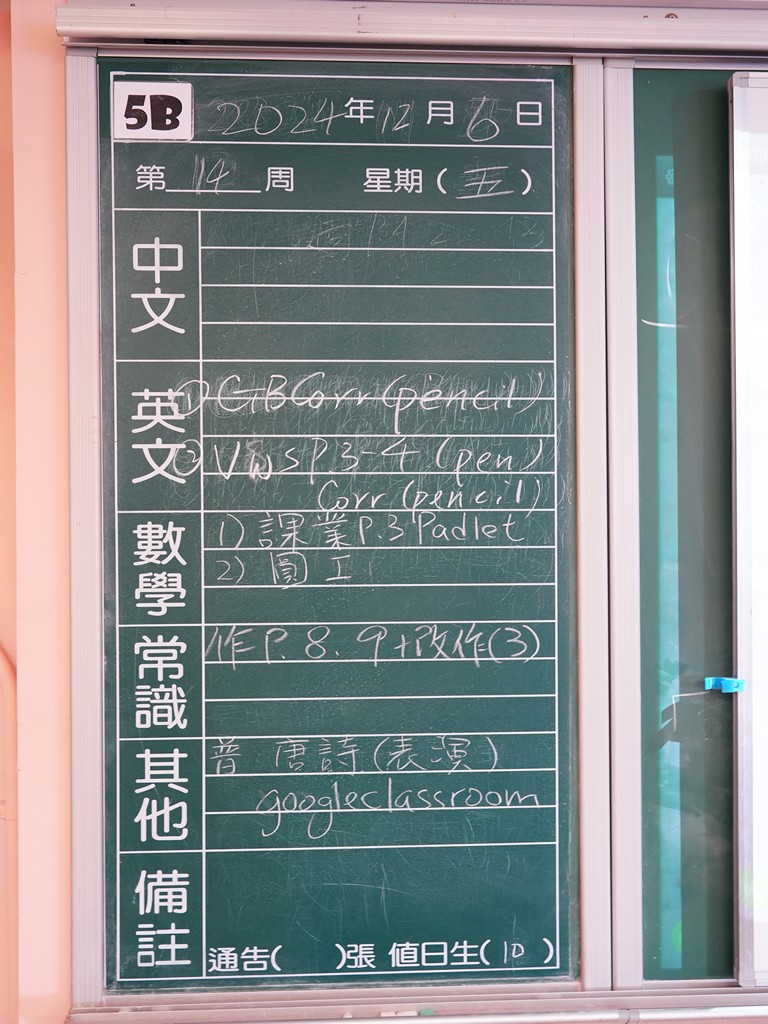 5B 2024年12月6日
第14周 星期(五)
中文
英文
① GB Corr (pencil)
② VWS P.3-4 (pen)
Corr (pencil)
數學
1) 課業P.3 Padlet
2) 圓工
常識
作P.8、9+改作(3)
其他
普 唐詩(表演)
googleclassroom
備註
通告( )張 值日生(10)